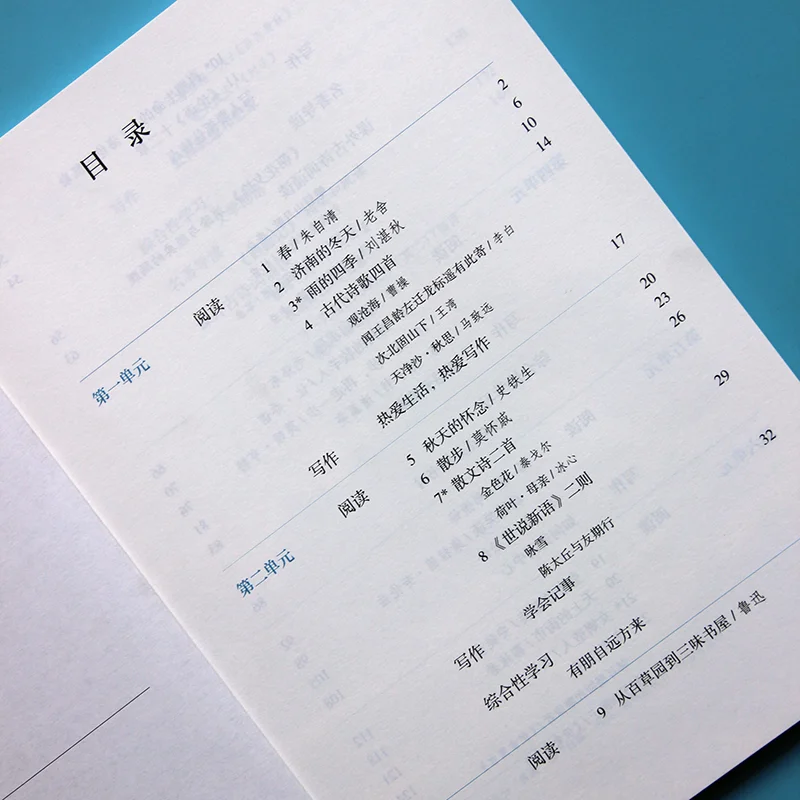 目 录
第一单元
阅读 1 春 / 朱自清 2
2 济南的冬天 / 老舍 6
3* 雨的四季 / 刘湛秋 10
4 古代诗歌四首 14
观沧海 / 曹操
闻王昌龄左迁龙标遥有此寄 / 李白
次北固山下 / 王湾
天净沙·秋思 / 马致远
写作 热爱生活，热爱写作 17
第二单元
阅读 5 秋天的怀念 / 史铁生 20
6 散步 / 莫怀戚 23
7* 散文诗二首 26
金色花 / 泰戈尔
荷叶·母亲 / 冰心
8 《世说新语》二则 29
咏雪
陈太丘与友期行
写作 学会记事 32
综合性学习 有朋自远方来
阅读 9 从百草园到三味书屋 / 鲁迅